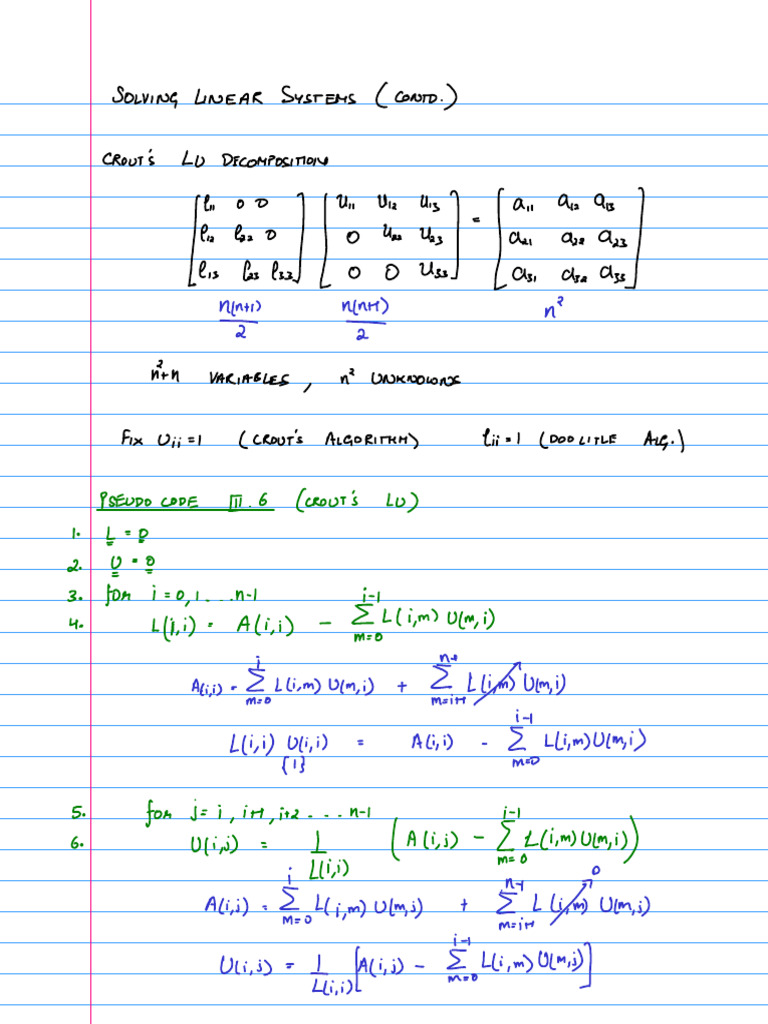 SOLVING LINEAR SYSTEMS (CONTD.)
CROUT'S LU DECOMPOSITION
[l₁₁ 0 0] [u₁₁ u₁₂ u₁₃] = [a₁₁ a₁₂ a₁₃]
[l₁₂ l₂₂ 0] [0 u₂₂ u₂₃] [a₂₁ a₂₂ a₂₃]
[l₁₃ l₂₃ l₃₃] [0 0 u₃₃] [a₃₁ a₃₂ a₃₃]
n(n+1)/2 n(n+1)/2 n²
n²+n VARIABLES, n² UNKNOWNS
FIX Uii=1 (CROUT'S ALGORITHM) lii=1 (DOOLITLE ALG.)
PSEUDO CODE III.6 (CROUT'S LU)
1. L = 0
2. U = 0
3. for i = 0,1...n-1
4. L(i,i) = A(i,i) - ∑_{m=0}^{i-1} L(i,m) U(m,i)
A(i,i) = ∑_{m=0}^{i} L(i,m) U(m,i) + ∑_{m=i+1}^{n-1} L(i,m) U(m,i)
L(i,i) U(i,i) = A(i,i) - ∑_{m=0}^{i-1} L(i,m) U(m,i)
{1}
5. for j = i, i+1, i+2 ... n-1
6. U(i,j) = 1/L(i,i) (A(i,j) - ∑_{m=0}^{i-1} L(i,m) U(m,i))
A(i,j) = ∑_{m=0}^{i} L(i,m) U(m,j) + ∑_{m=i+1}^{n-1} L(i,m) U(m,j) 0
U(i,j) = 1/L(i,i) [A(i,j) - ∑_{m=0}^{i-1} L(i,m) U(m,j)]